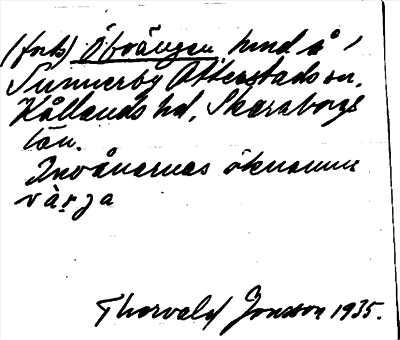 (forts) Öboängen hmd å 1
Sunnerby Otterstads sn.
Kållands hd, Skaraborgs
län.
Invånarnas öknamn
värja
Thorvald Jonsson 1935.